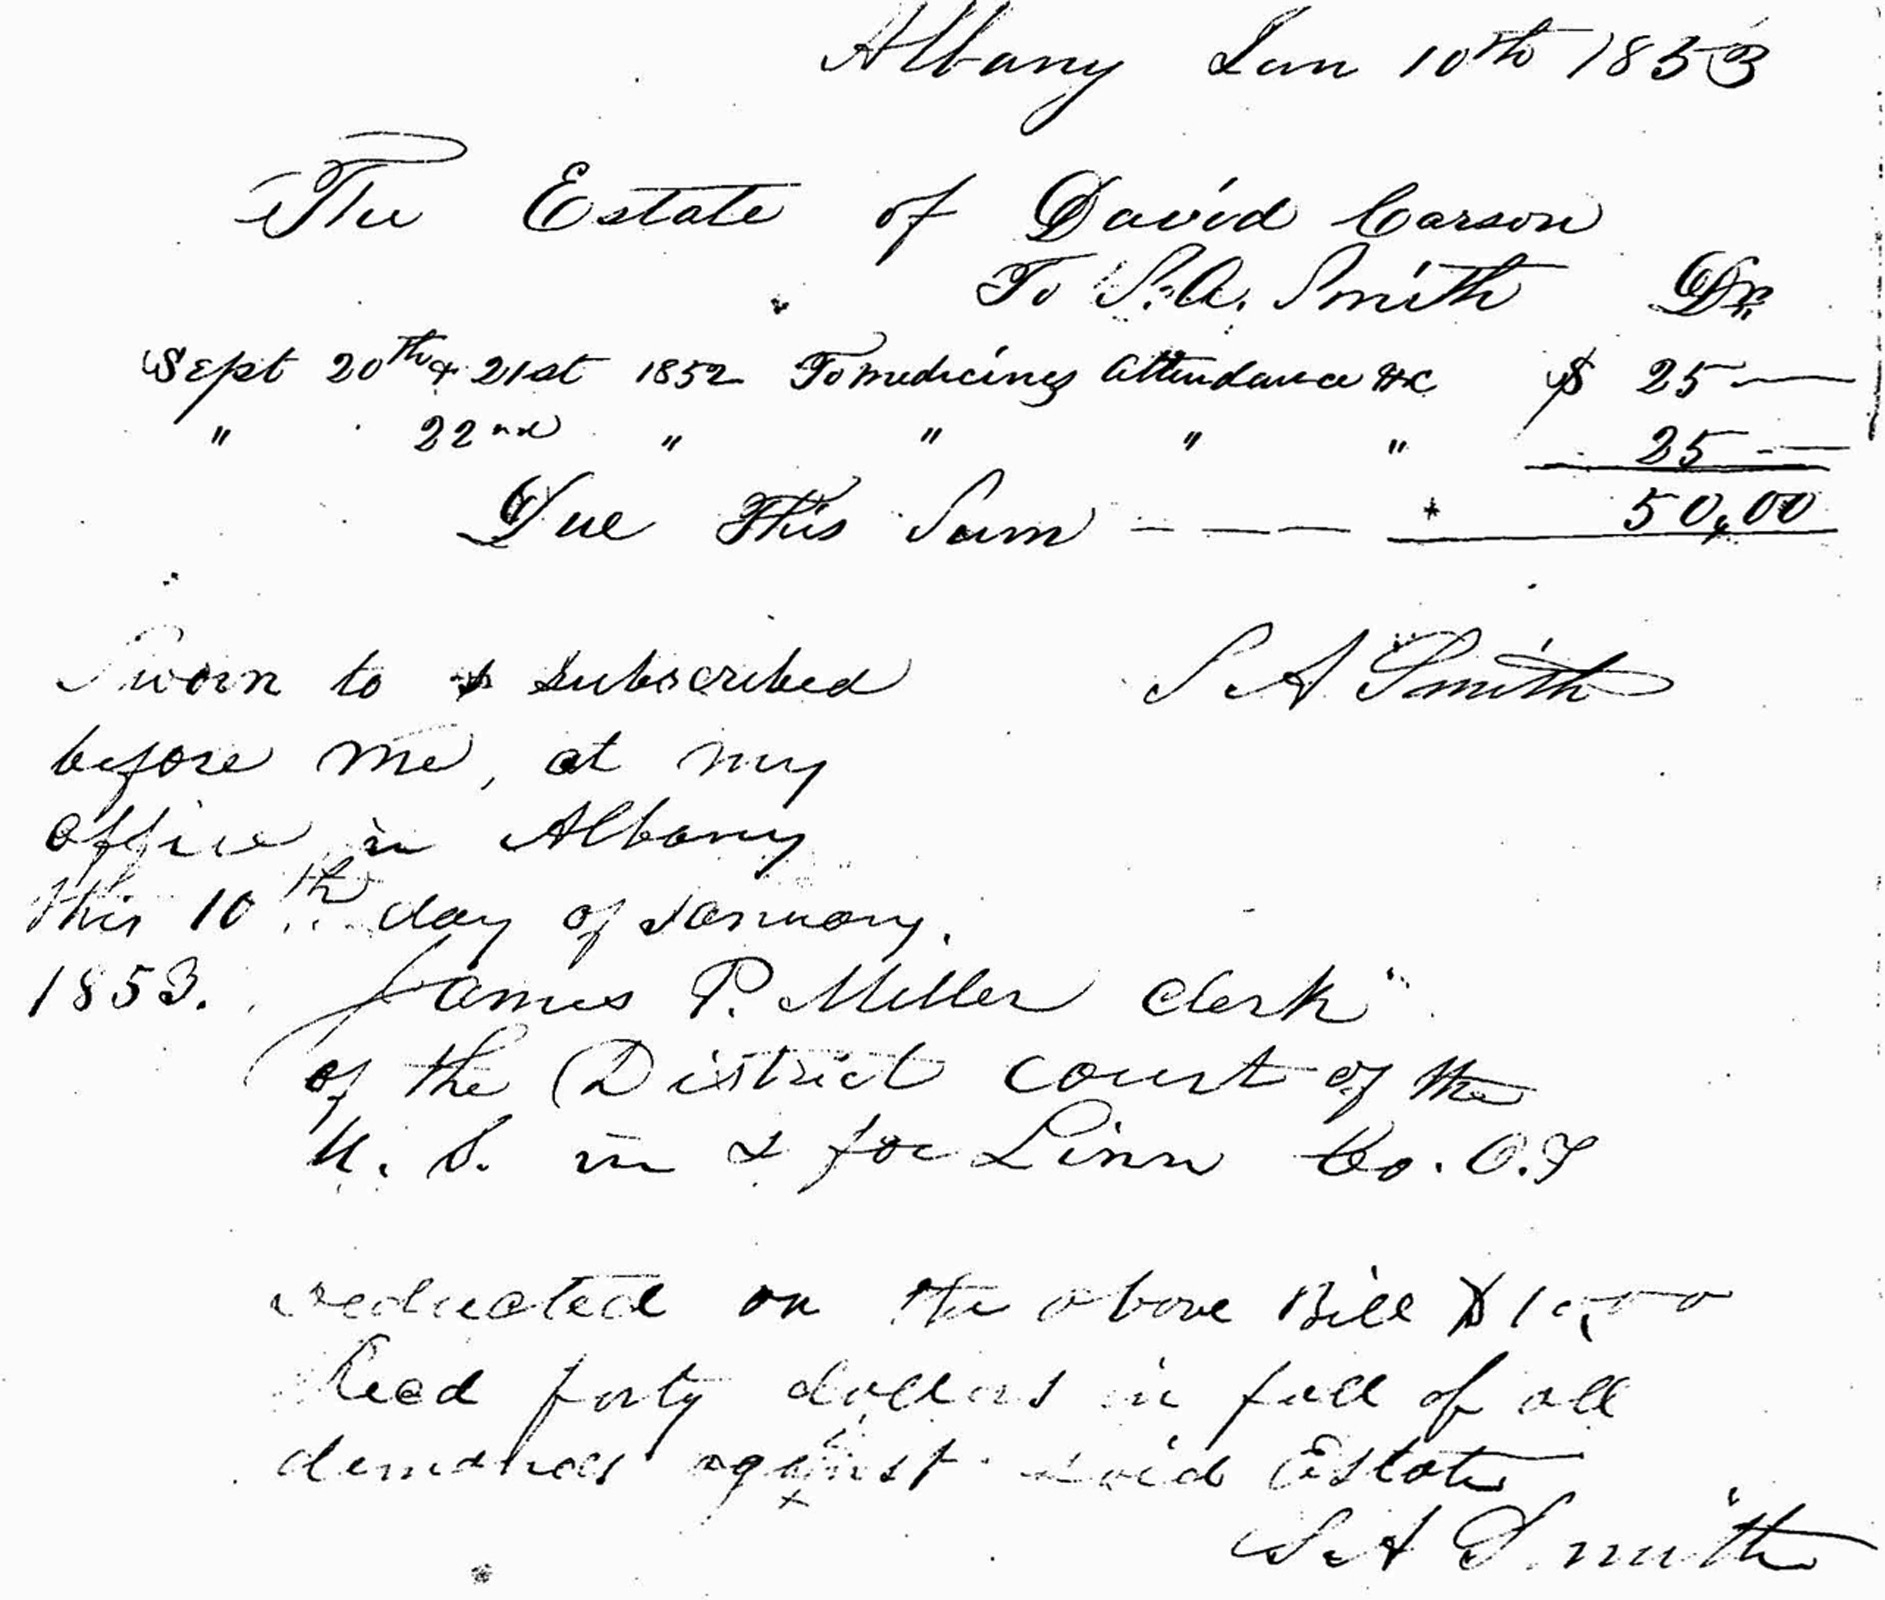 Albany Jan 10th 1853
The Estate of David Carson
To S. A. Smith Dr.
Sept 20th & 21st 1852 To medicines attendance &c $ 25 —
" 22nd " " " " 25 —
Due This Sum — — — 50,00
S A Smith
Sworn to & subscribed
before me, at my
office in Albany
this 10th day of January.
1853. James P. Miller Clerk
of the District court of the
U. S. in & for Linn Co. O.T
reducted on the above Bill $10,00
Recd forty dollars in full of all
demands against said Estate
S A Smith